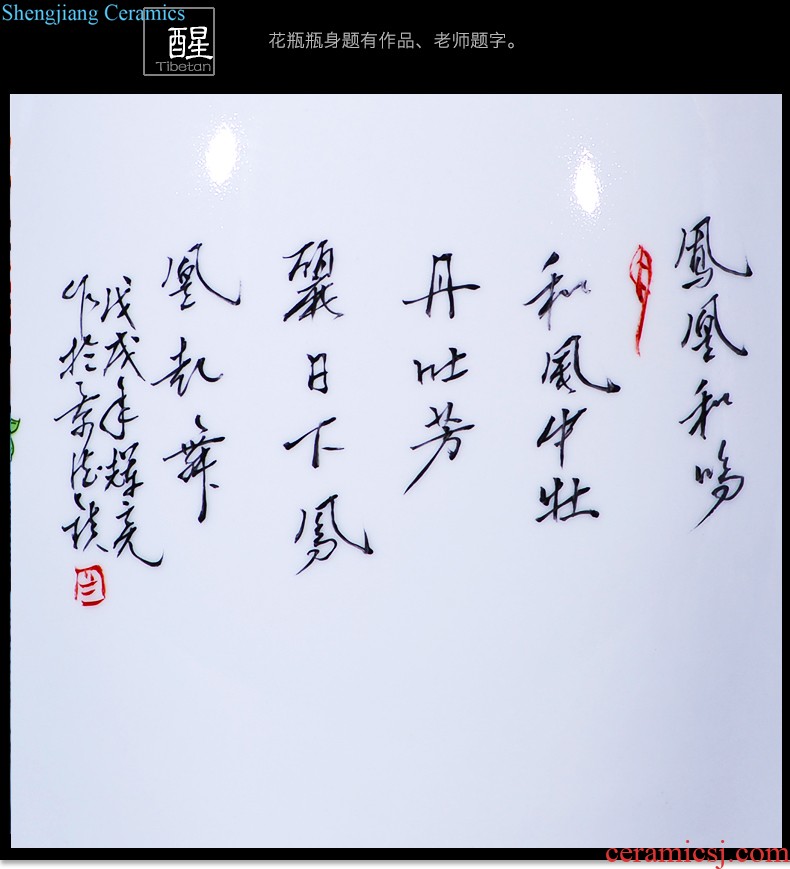 Shengjiang Ceramics
醒
Tibetan
花瓶瓶身题有作品、老师题字。
鳳凰和鸣
和風中牡
丹吐芳
麗日下鳳
凰起舞
戊戌年耀亮
作於景德镇
ceramicsj.com